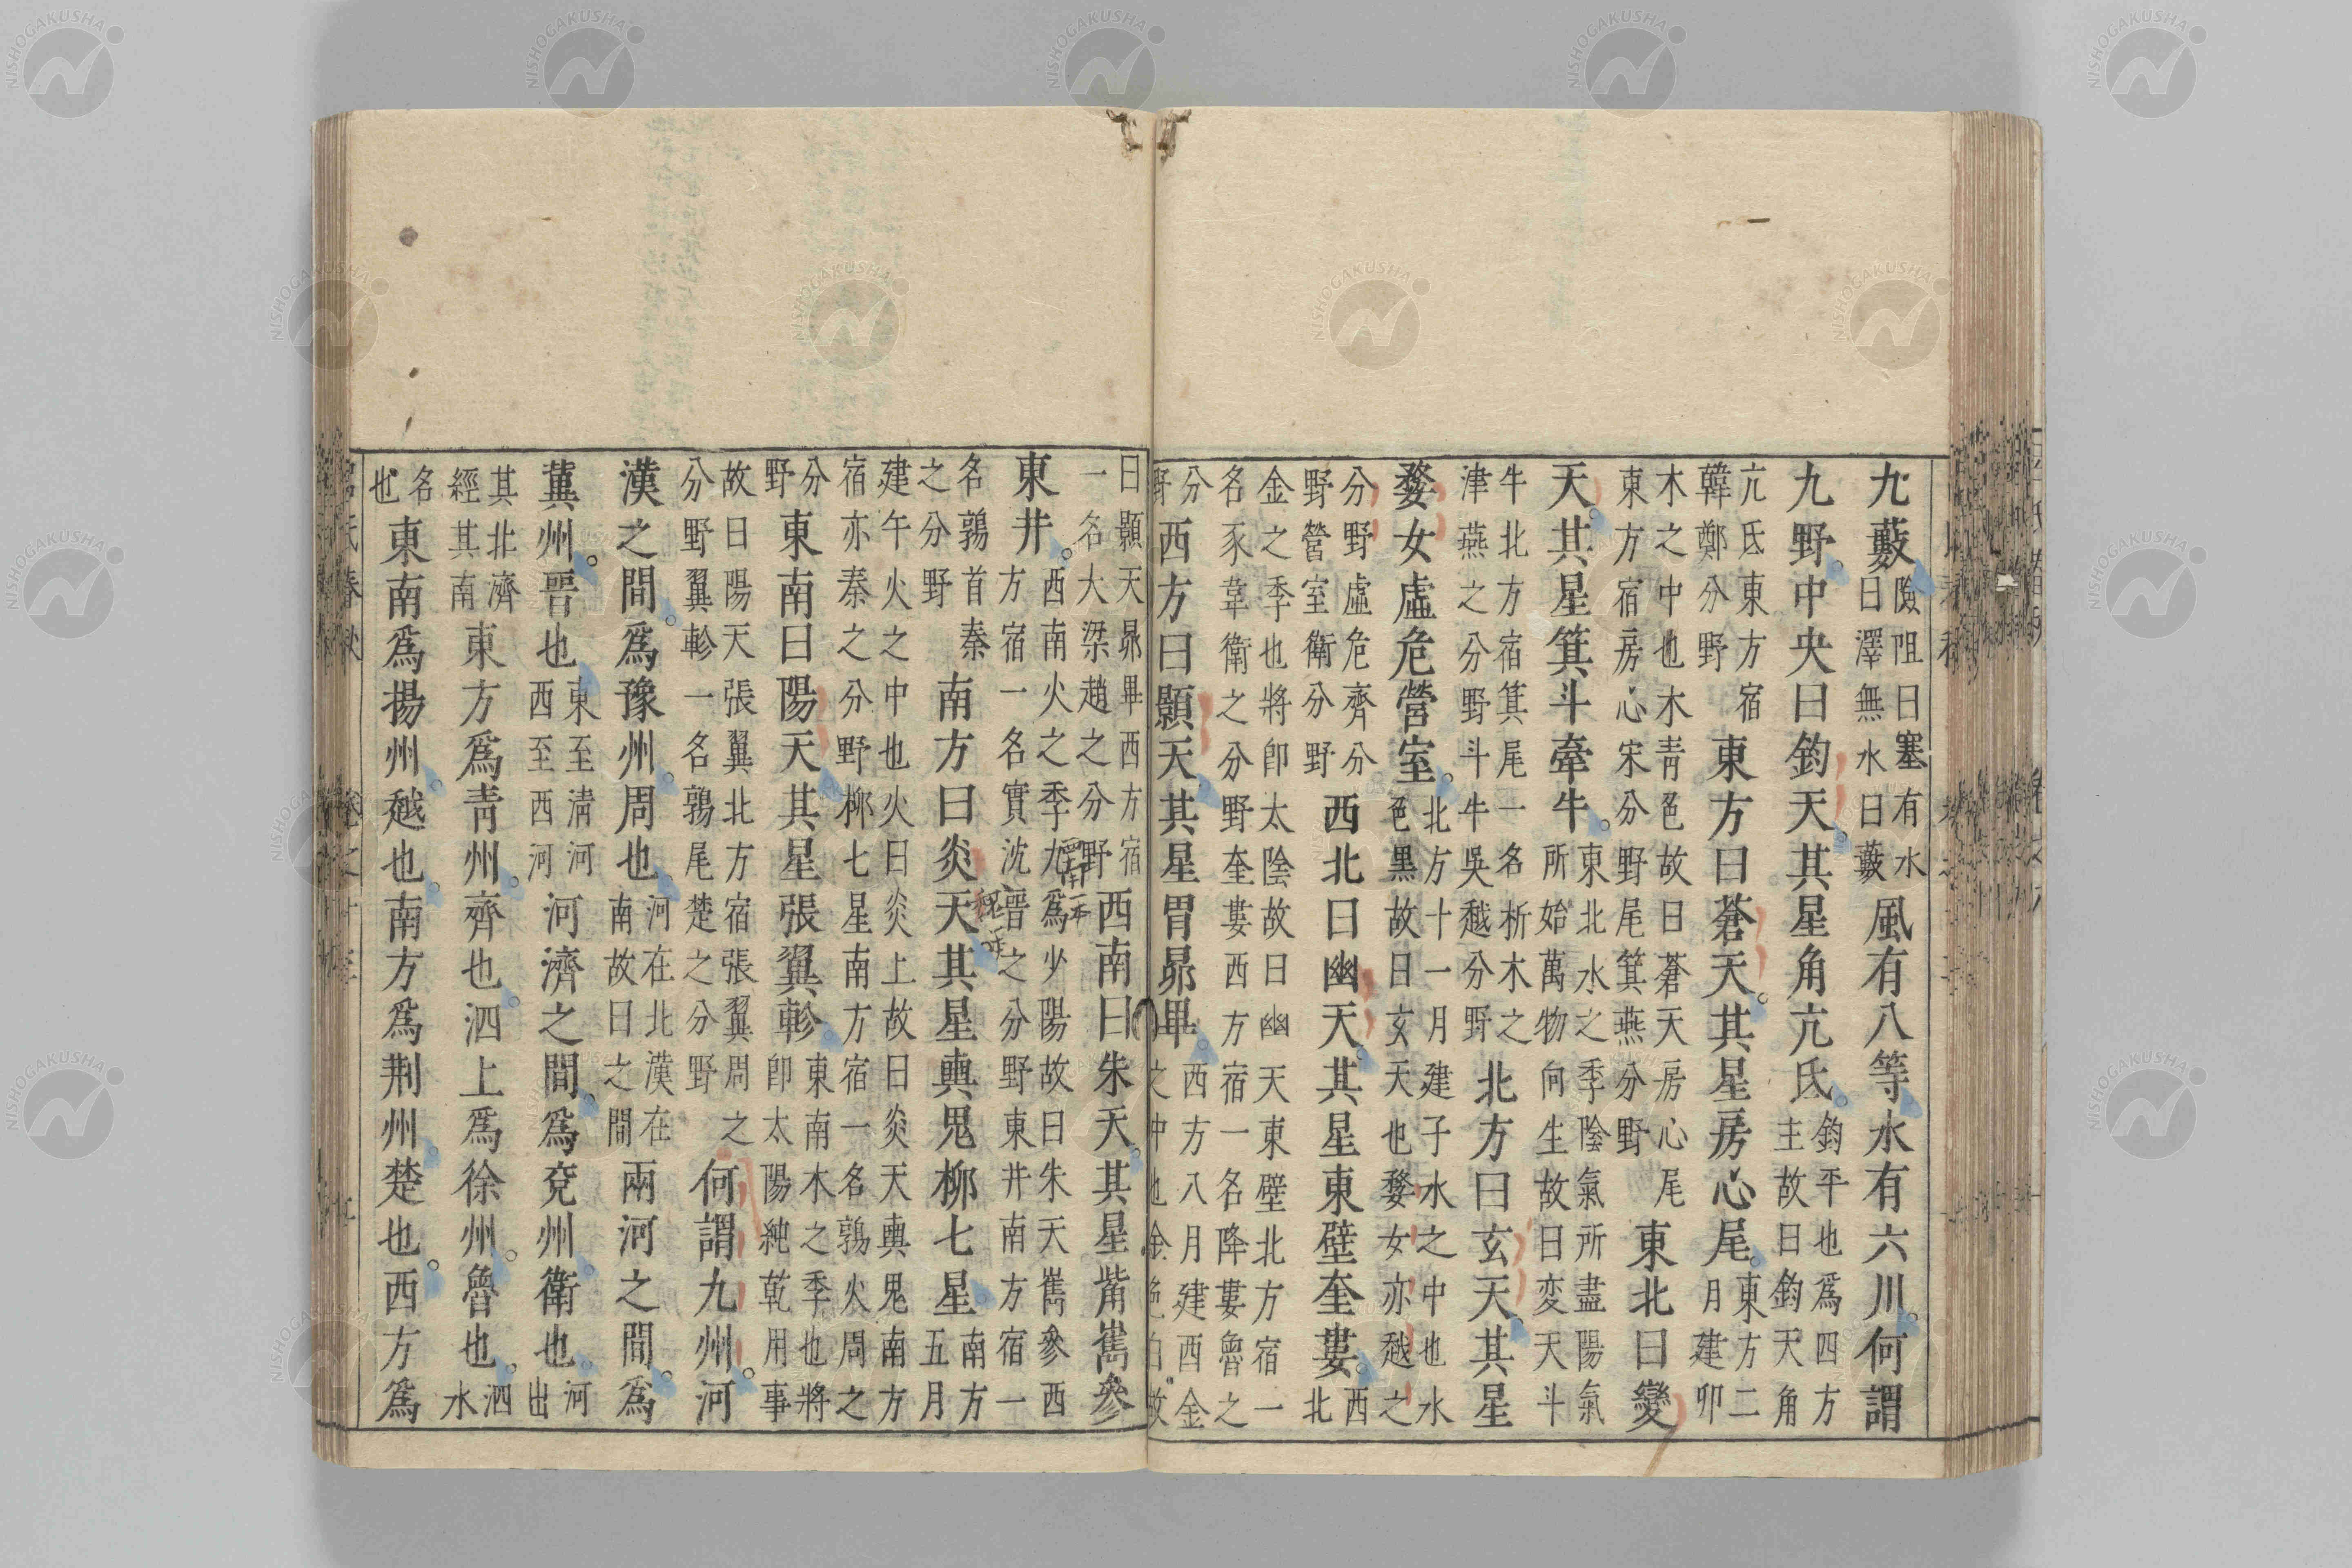 九藪險阻曰塞有水曰澤無水曰藪風有八等水有六川。何謂
九野。中央曰鈞天。其星角亢氐。鈞平也爲四方主故曰鈞天角
亢氐東方宿韓鄭分野東方曰蒼天。其星房心尾。東方二月建卯
木之中也木青色故曰蒼天房心尾東方宿房心宋分野尾箕燕分野東北曰變
天。其星箕斗牽牛。東北水之季陰氣所盡陽氣所始萬物向生故曰变天斗
牛北方宿箕尾一名析木之津燕之分野斗牛吳越分野北方曰玄天。其星
婺女虛危營室。北方十一月建子水之中也水色黑故曰玄天也婺女亦越之
分野虛危齊分野營室衛分野西北曰幽天。其星東壁奎婁。西北
金之季也將卽太陰故曰幽天東壁北方宿一名豕韋衛之分野奎婁西方宿一名降婁魯之
分野西方曰顥天。其星胃昴畢。西方八月建酉金之中也金色白故
曰顥天昴畢西方宿一名大梁趙之分野西南曰朱天。其星觜巂參
東井。西南火之季尤爲少陽故曰朱天巂參西方宿一名實沈晉之分野東井南方宿一
名鶉首秦之分野南方曰炎天其星輿鬼柳七星南方五月
建午火之中也火曰炎上故曰炎天輿鬼南方宿亦秦之分野柳七星南方宿一名鶉火周之
分野東南曰陽天其星張翼軫。東南木之季也將卽太陽純乾用事
故曰陽天張翼北方宿張翼周之分野翼軫一名鶉尾楚之分野何謂九州。河
漢之間。爲豫州。周也。河在北漢在南故曰之間兩河之間。爲
冀州。晉也東至清河西至西河河濟之間。爲兗州。衛也。河出
其北濟經其南東方爲青州。齊也。泗上爲徐州。魯也。泗水
名也東南爲揚州。越也。南方爲荆州。楚也。西方爲
呂氏春秋 卷之十三